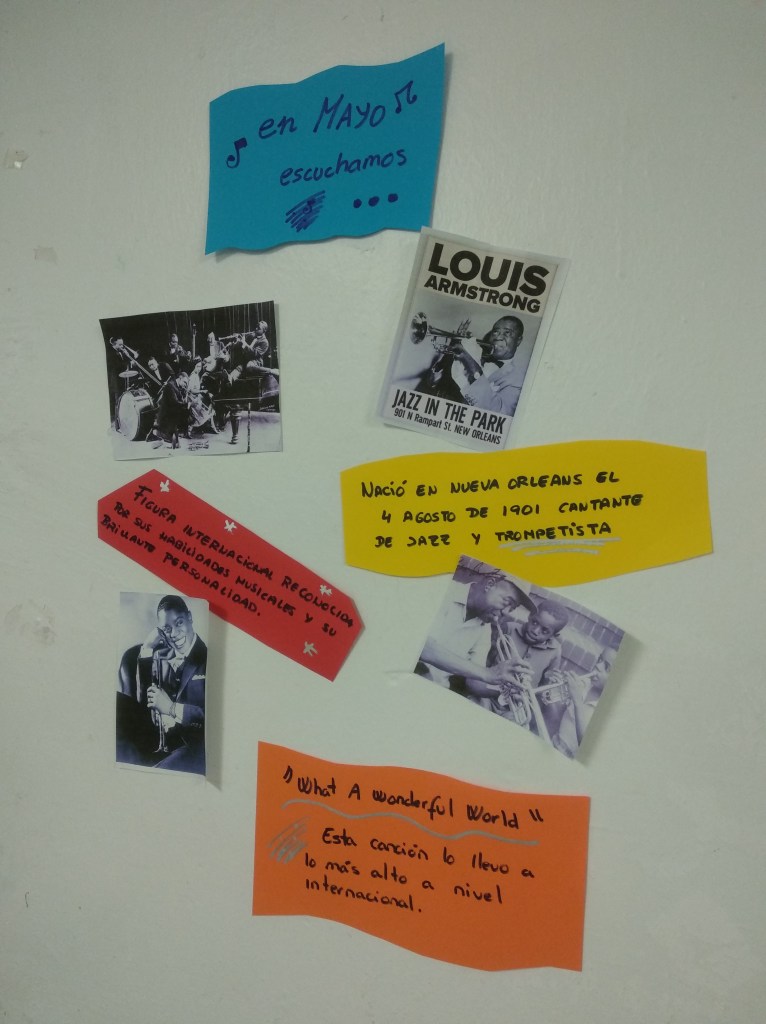 en MAYO
escuchamos
...
LOUIS
ARMSTRONG
JAZZ IN THE PARK
901 N Rampart St. NEW ORLEANS
NACIÓ EN NUEVA ORLEANS EL
4 AGOSTO DE 1901 CANTANTE
DE JAZZ Y TROMPETISTA
FIGURA INTERNACIONAL RECONOCIDA
POR SUS HABILIDADES MUSICALES Y SU
BRILLANTE PERSONALIDAD.
"What A Wonderful World"
Esta canción lo llevo a
lo más alto a nivel
internacional.